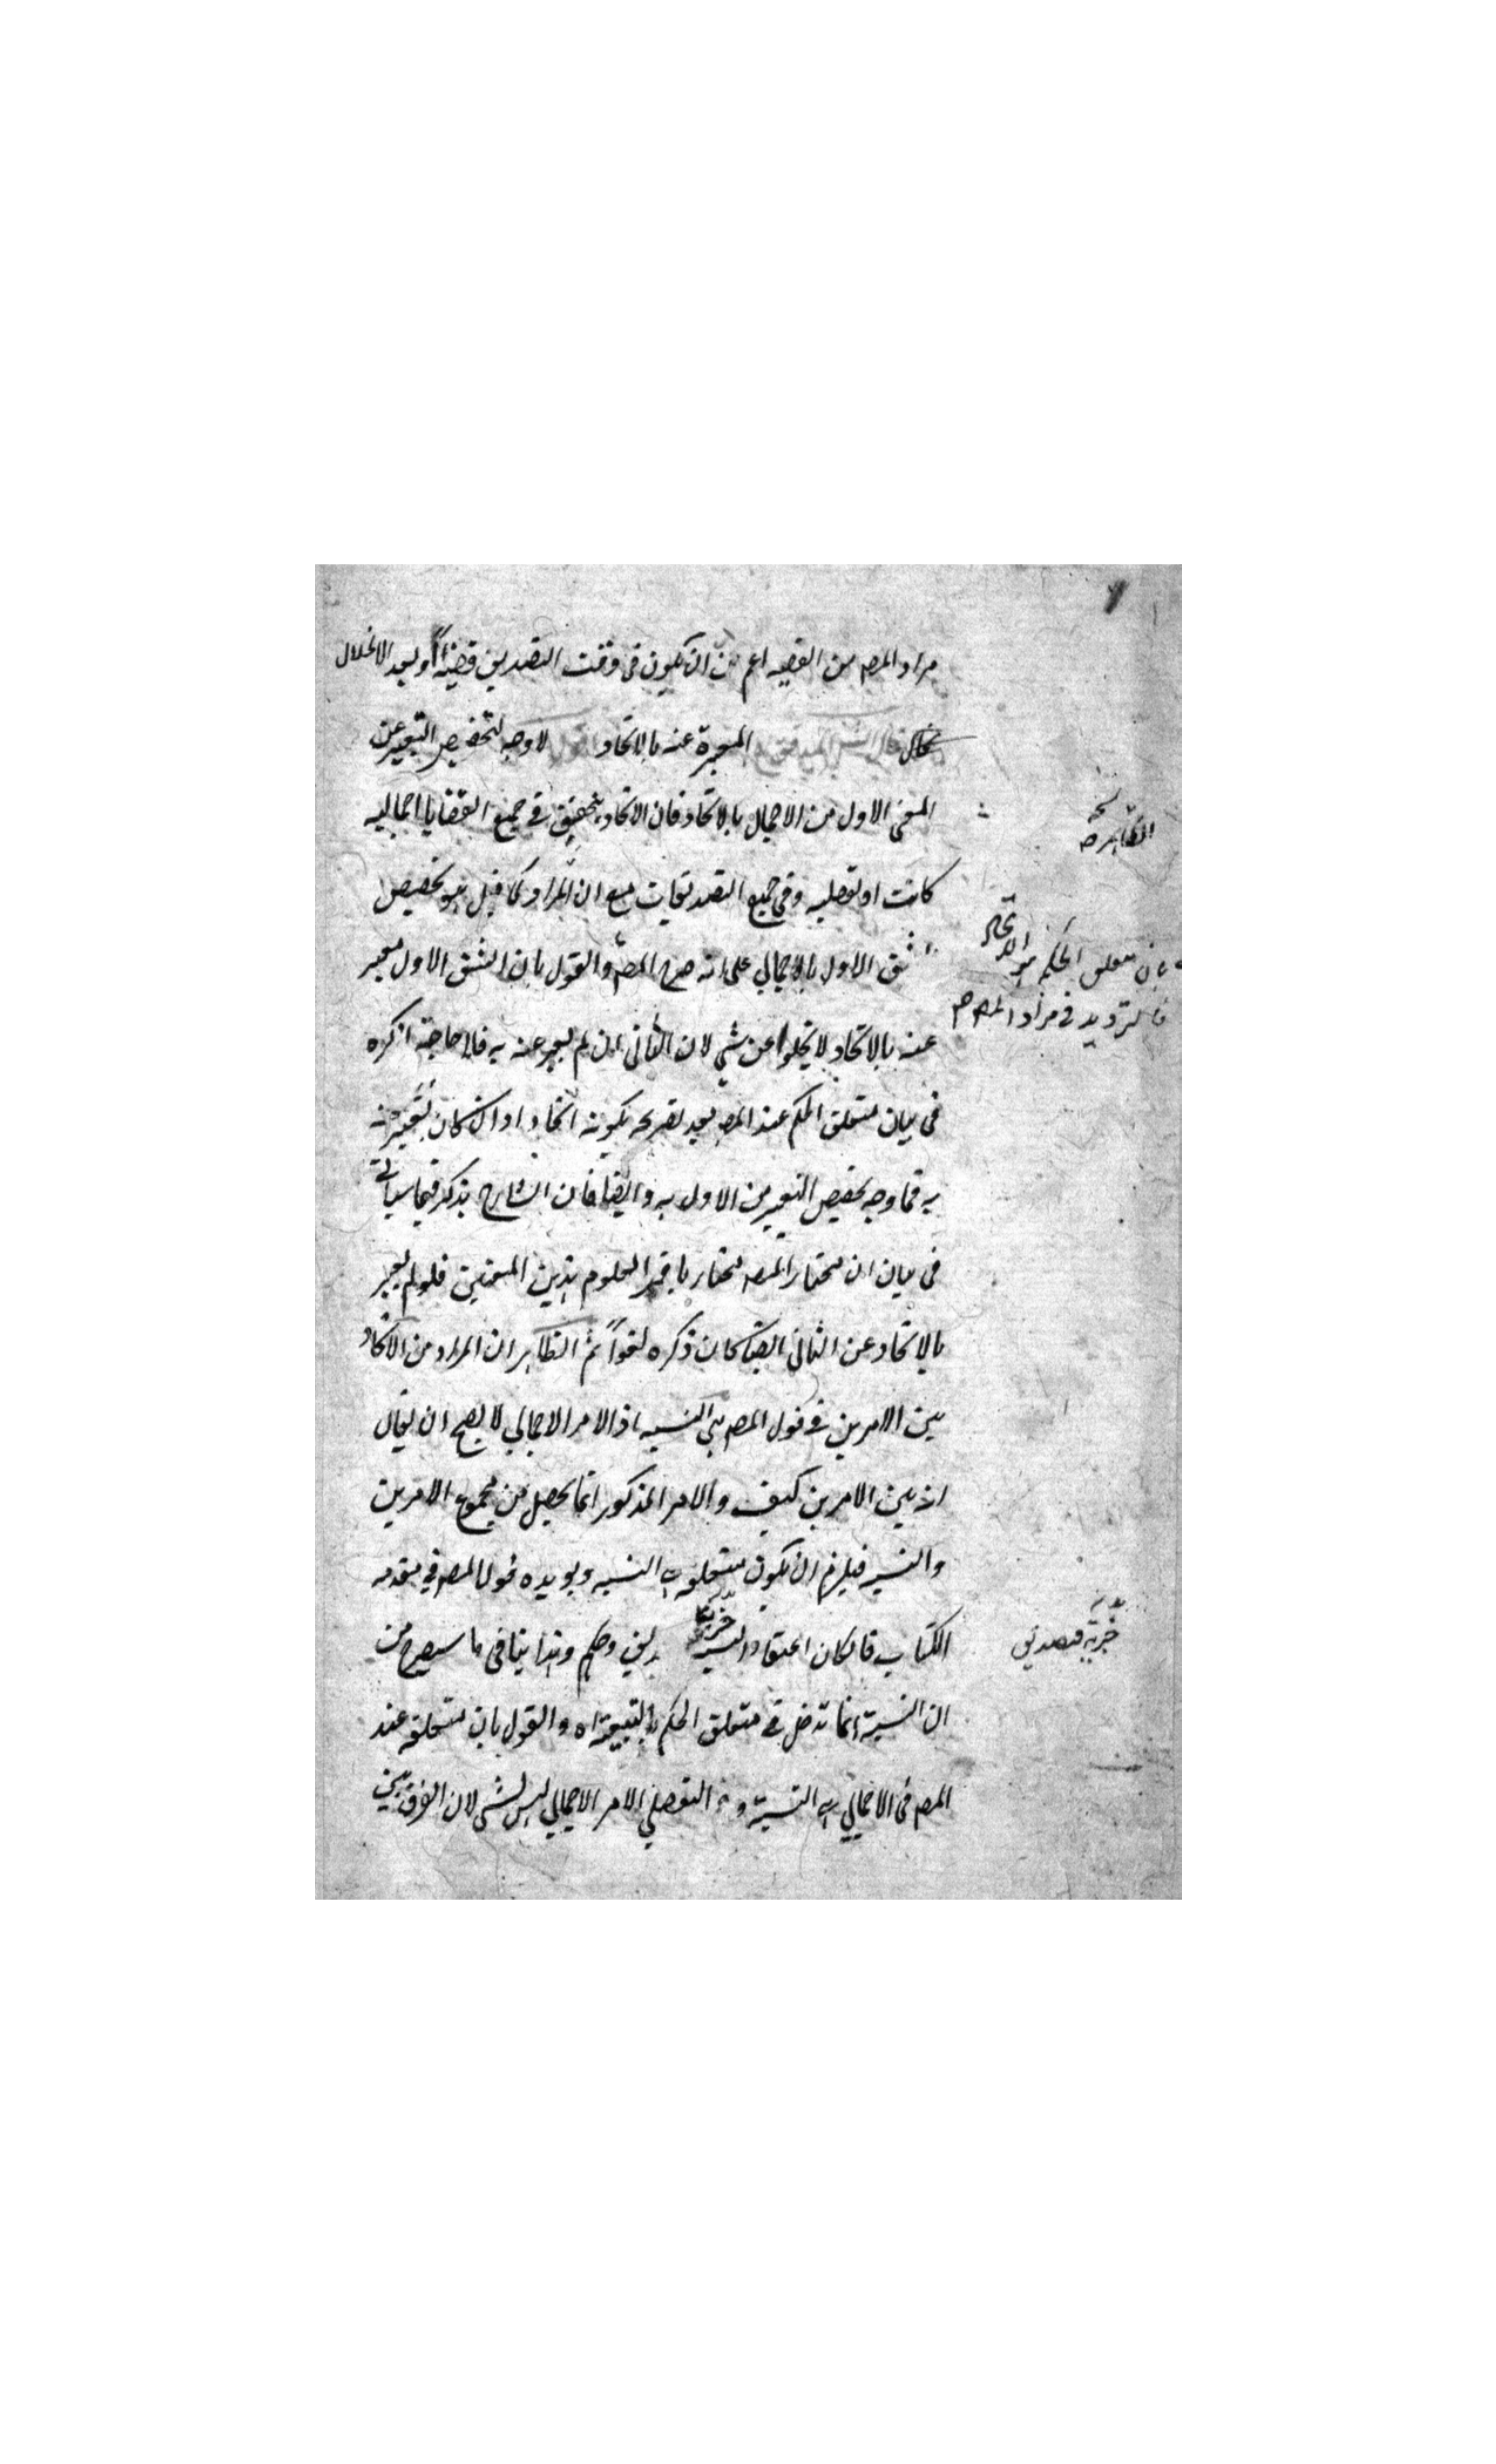 مراد المصـ من القضيه اعم من ان يكون فى وقت التصديق قضية او بعد الانحلال
المعبرة عنه بالاتحاد لا وجه لتخصيص التعبير عن
المعنى الاول من الاجمال بالاتحاد فان الاتحاد يتحقق فى جميع القضايا اجماليه
كانت او تفصليه وفى جميع التصديقات مع ان المراد كما قيل هو تخصيص
الشق الاول بالاجمالي على انه صرح المصـ والقول بان الشق الاول معبر
عنه بالاتحاد لا يخلوا عن شي لان الثانى ان لم يعبر عنه به فلا حاجة اذكره
فى بيان متعلق الحكم عند المصـ بعد تصريحه بكونه اتحادا وان كان بتعبير عنه
به فما وجه تخصيص التعبير من الاول به وايضا فان الشارح يذكر فيما سياتى
فى بيان ان مختار المصـ مختار باقر العلوم بهذين المعنيين فلو لم يعبر
بالاتحاد عن الثانى ايضا كان ذكره لغوا ثم الظاهر ان المراد من الاتحاد
بين الامرين فى قول المصـ هى النسبه اذ الامر الاجمالي لا يصح ان يقال
انه بين الامرين كيف والامر المذكور انما يحصل من مجموع الامرين
والنسبه فيلزم ان يكون متعلقه النسبه ويويده قول المصـ فى مقدمه
الكتاب فان كان اعتقاد النسبه خبرية وحكم وهذا ينافى ما سيصرح من
ان النسبة انما تدخل فى متعلق الحكم بالتبعية اه والقول بان متعلقه عند
المصـ فى الاجمالي هى النسبة و فى التفصلي الامر الاجمالي ليس بشى لان الفرق بين
الظاهرة
بان متعلق الحكم هو الاتحاد
فالترديد فى مراد المصـ
خبرية فتصديق